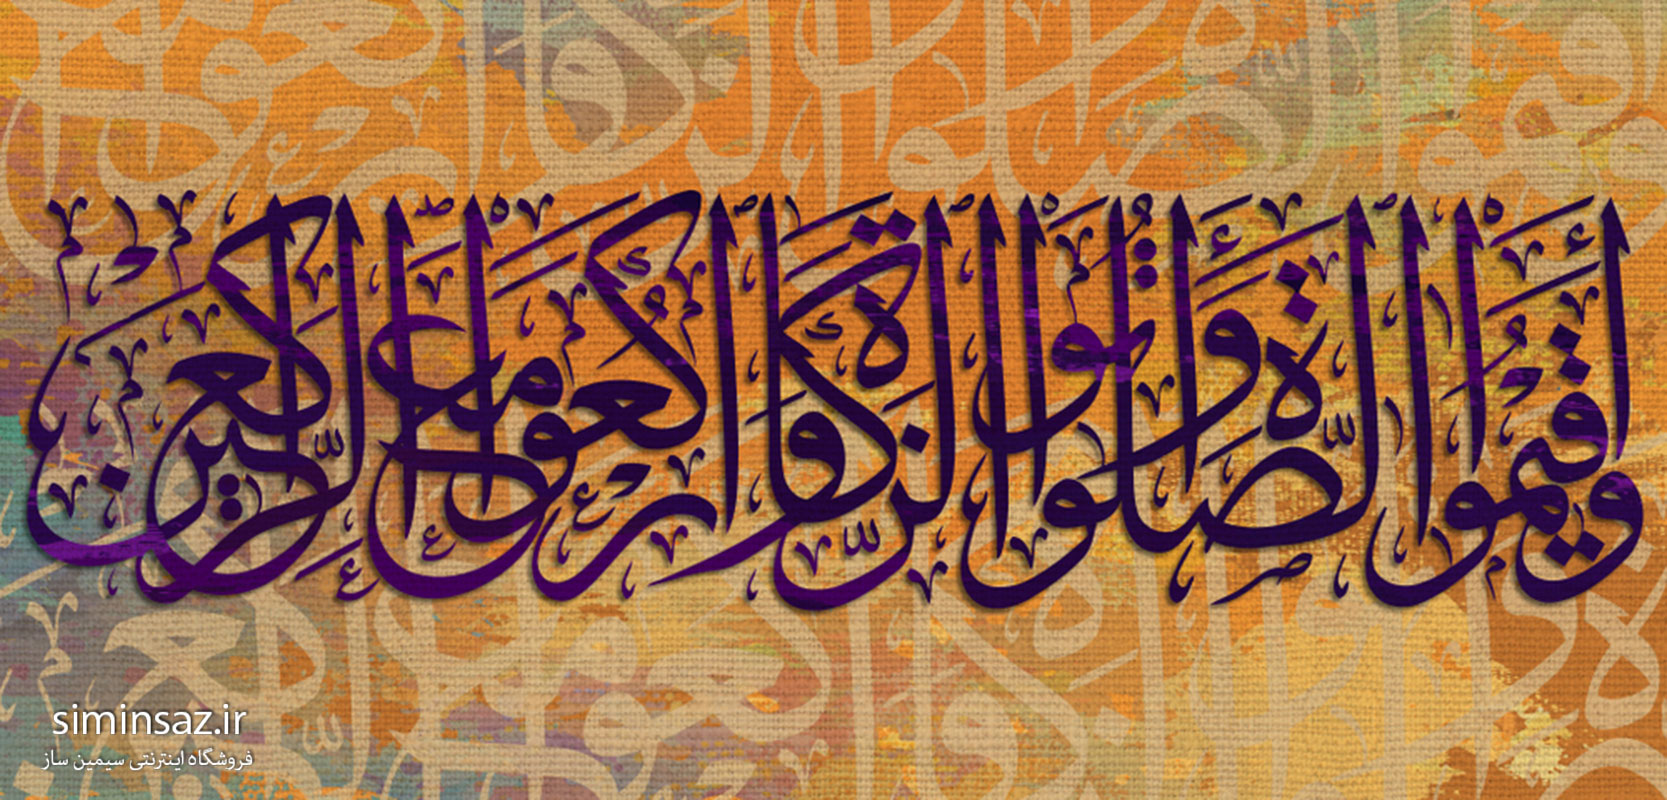 وَأَقِيمُوا الصَّلَوٰةَ وَآتُوا الزَّكَوٰةَ وَارْكَعُوا مَعَ الرَّاكِعِينَ
siminsaz.ir
فروشگاه اینترنتی سیمین ساز